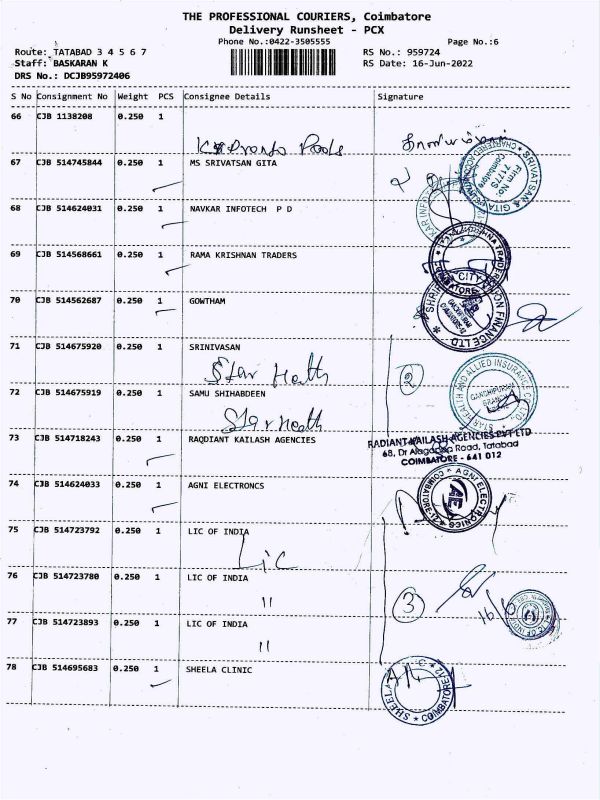 THE PROFESSIONAL COURIERS, Coimbatore
Delivery Runsheet - PCX
Phone No.:0422-3505555 Page No.:6
Route: TATABAD 3 4 5 6 7 RS No.: 959724
Staff: BASKARAN K RS Date: 16-Jun-2022
DRS No.: DCJB95972406
S No Consignment No Weight PCS Consignee Details Signature
66 CJB 1138208 0.250 1
67 CJB 514745844 0.250 1 MS SRIVATSAN GITA
SRIVATSAN & GITA
CHARTERED ACCOUNTANTS
Firm No: 7177S
Coimbatore
68 CJB 514624031 0.250 1 NAVKAR INFOTECH P D
69 CJB 514568661 0.250 1 RAMA KRISHNAN TRADERS
CITY
70 CJB 514562687 0.250 1 GOWTHAM
FINANCE LTD.
71 CJB 514675920 0.250 1 SRINIVASAN
Star Health
2
STAR HEALTH AND ALLIED INSURANCE CO. LTD.
72 CJB 514675919 0.250 1 SAMU SHIHABDEEN
Star Health
73 CJB 514718243 0.250 1 RAQDIANT KAILASH AGENCIES
RADIANT KAILASH AGENCIES PVT LTD
68, Dr Alagappa Road, Tatabad
COIMBATORE - 641 012
74 CJB 514624033 0.250 1 AGNI ELECTRONCS
AGNI ELECTRONICS
AE
75 CJB 514723792 0.250 1 LIC OF INDIA
LIC
76 CJB 514723780 0.250 1 LIC OF INDIA
"
3
16/6
77 CJB 514723893 0.250 1 LIC OF INDIA
"
78 CJB 514695683 0.250 1 SHEELA CLINIC